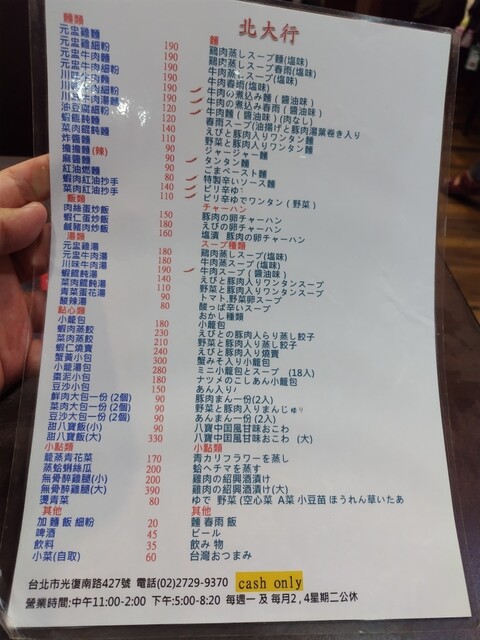 北大行
麵類 麵
元盅雞麵 190 鶏肉蒸しスープ麵(塩味)
元盅雞細粉 190 鶏肉蒸しスープ春雨(塩味)
元盅牛肉麵 190 牛肉蒸しスープ(塩味)
元盅牛肉細粉 190 牛肉春雨(塩味)
川味牛肉麵 牛肉の煮込み麵(醬油味)
川味牛肉細粉 190 牛肉の煮込み春雨(醬油味)
川味牛肉湯麵 120 牛肉麵(醬油味)(肉なし)
油豆腐細粉 120 春雨スープ(油揚げと豚肉湯葉巻き入り
蝦餛飩麵 140 えびと豚肉入りワンタン麵
菜肉餛飩麵 120 野菜と豚肉入りワンタン麵
炸醬麵 110 ジャージャー麵
擔擔麵(辣) 90 タンタン麵
麻醬麵 90 ごまペースト麵
紅油燃麵 80 特製辛いソース麵
蝦肉紅油抄手 140 ピリ辛ゆ
菜肉紅油抄手 110 ピリ辛ゆでワンタン(野菜)
飯類 チャーハン
肉絲蛋炒飯 150 豚肉の卵チャーハン
蝦仁蛋炒飯 180
鹹豬肉炒飯 160 塩漬 豚肉の卵チャーハン
湯類 スープ種類
元盅雞湯 180 鶏肉蒸しスープ(塩味)
元盅牛肉湯 180 牛肉蒸スープ(塩味)
川味牛肉湯 190 牛肉スープ(醬油味)
蝦餛飩湯 140 えびと豚肉入りワンタンスープ
菜肉餛飩湯 110 野菜と豚肉入りワンタンスープ
青菜蛋花湯 90 トマト,野菜卵スープ
酸辣湯 80 酸っぱ辛いスープ
點心類 おかし種類
小籠包 180 小籠包
蝦肉蒸餃 230 えびとの豚肉入らり蒸し餃子
菜肉蒸餃 210 野菜と豚肉入らり蒸し餃子
蝦仁燒賣 240 えびと豚肉入り燒賣
蟹黃小包 300 蟹みそ入り小籠包
小籠湯包 280 ミニ小籠包とスープ (18入)
棗泥小包 180 ナツメのこしあん小籠包
豆沙小包 150 あん入り
鮮肉大包一份(2個) 90 豚肉まん一份(2入)
菜肉大包一份(2個) 90 野菜と豚肉入りまんじゅう
豆沙大包一份(2個) 90 あんまん一份(2入)
甜八寶飯(小) 90 八寶中国風甘味おこわ
甜八寶飯(大) 330 八寶中国風甘味おこわ (大)
小點類 小點類
龍蒸青花菜 170 青カリフラワーを蒸し
蒸蛤蜊絲瓜 200 蛤ヘチマを蒸す
無骨醉雞腿(小) 200 雞肉の紹興酒漬け
無骨醉雞腿(大) 390 雞肉の紹興酒漬け(大)
燙青菜 80 ゆで 野菜(空心菜 A菜 小豆苗 ほうれん草いたあ
其他 其他
加 麵 飯 細粉 20 麵 春雨 飯
啤酒 45 ビール
飲料 35 飲み物
小菜(自取) 60 台湾おつまみ
台北市光復南路427號 電話(02)2729-9370 cash only
營業時間:中午11:00-2:00 下午:5:00-8:20 每週一 及 每月2 , 4星期二公休